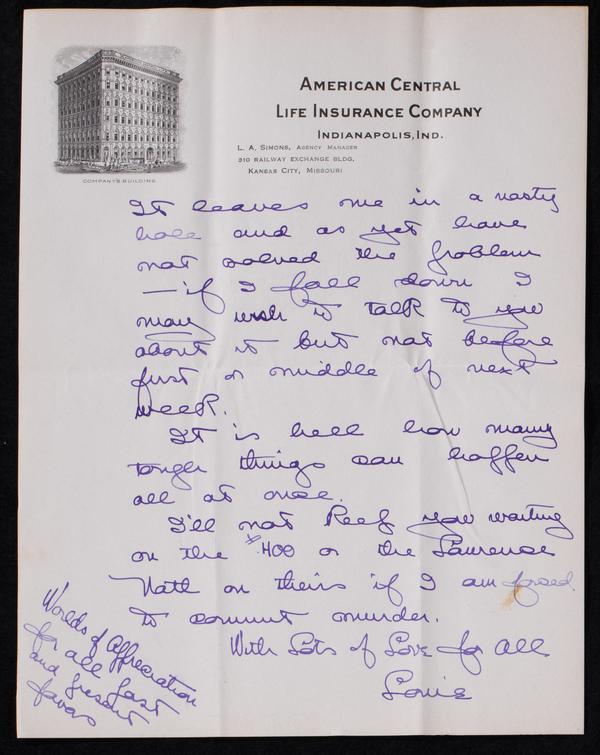 AMERICAN CENTRAL
LIFE INSURANCE COMPANY
INDIANAPOLIS, IND.
L. A. SIMONS, AGENCY MANAGER
310 RAILWAY EXCHANGE BLDG.
KANSAS CITY, MISSOURI
COMPANY'S BUILDING
It leaves me in a nasty
hole and as yet have
not solved the problem
— if I fall down I
may wish to talk to you
about it but not before
first or middle of next
week.
It is hell how many
tough things can happen
all at once.
I'll not keep you waiting
on the $400 or the Lawrence
Natl on theirs if I am forced
to commit murder.
With Lots of Love for All
Louie
Worlds of Appreciation
for all past
and present
favors